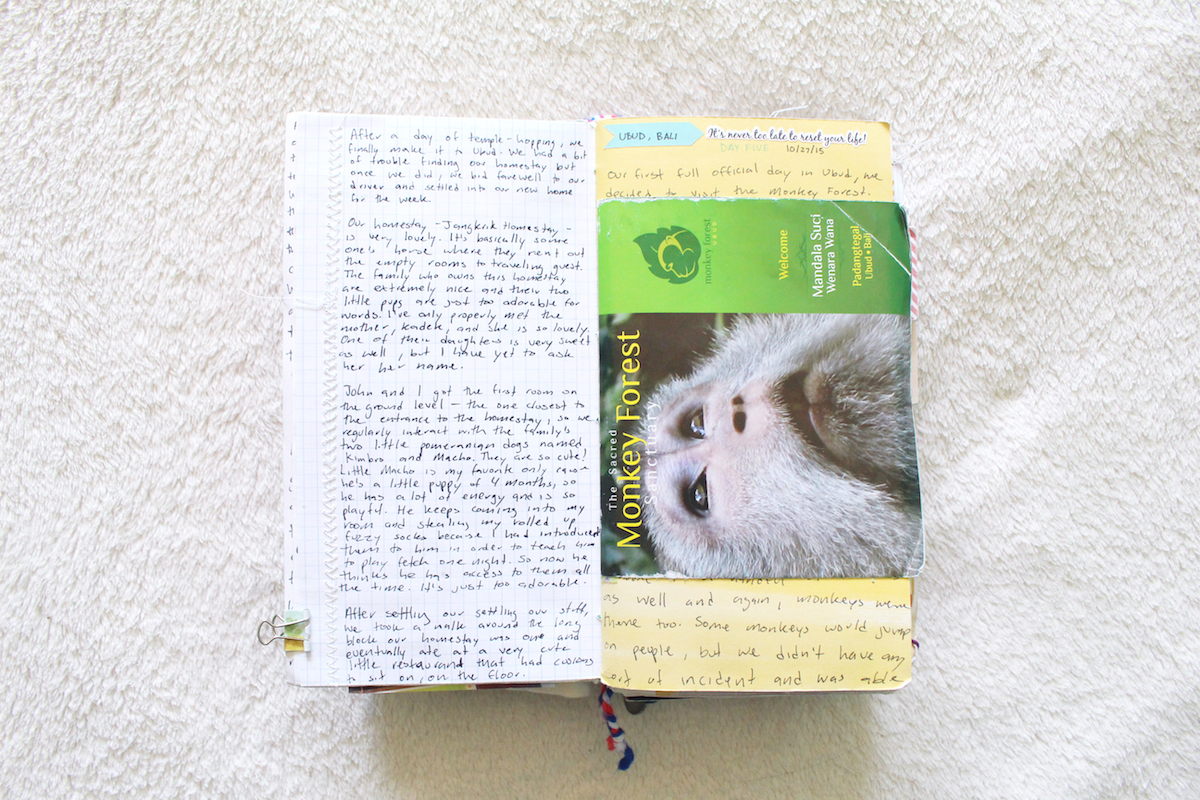 After a day of temple-hopping, we
finally make it to Ubud. We had a bit
of trouble finding our homestay but
once we did, we bid farewell to our
driver and settled into our new home
for the week.
Our homestay - Jangkrik Homestay -
is very lovely. It's basically some
one's house where they rent out
the empty rooms to traveling guest.
The family who owns this homestay
are extremely nice and their two
little pups are just too adorable for
words. I've only properly met the
mother, Kadek, and she is so lovely.
One of their daughters is very sweet
as well, but I have yet to ask
her her name.
John and I got the first room on
the ground level - the one closest to
the entrance to the homestay, so we
regularly interact with the family's
two little pomeranian dogs named
Kimbro and Macho. They are so cute!
Little Macho is my favorite only cause
he's a little puppy of 4 months, so
he has a lot of energy and is so
playful. He keeps coming into my
room and stealing my rolled up
fuzzy socks because I had introduced
them to him in order to teach him
to play fetch one night. So now he
thinks he has access to them all
the time. It's just too adorable.
After settling our settling our stuff,
we took a walk around the long
block our homestay was one and
eventually ate at a very cute
little restaurant that had cushions
to sit on, on the floor.
UBUD, BALI
It's never too late to reset your life!
DAY FIVE 10/27/15
Our first full official day in Ubud, we
decided to visit the Monkey Forest.
monkey forest
UBUD
Welcome
Mandala Suci
Wenara Wana
Padangtegal
Ubud • Bali
The Sacred
Monkey Forest
Sanctuary
as well and again, monkeys were
there too. Some monkeys would jump
on people, but we didn't have any
sort of incident and was able